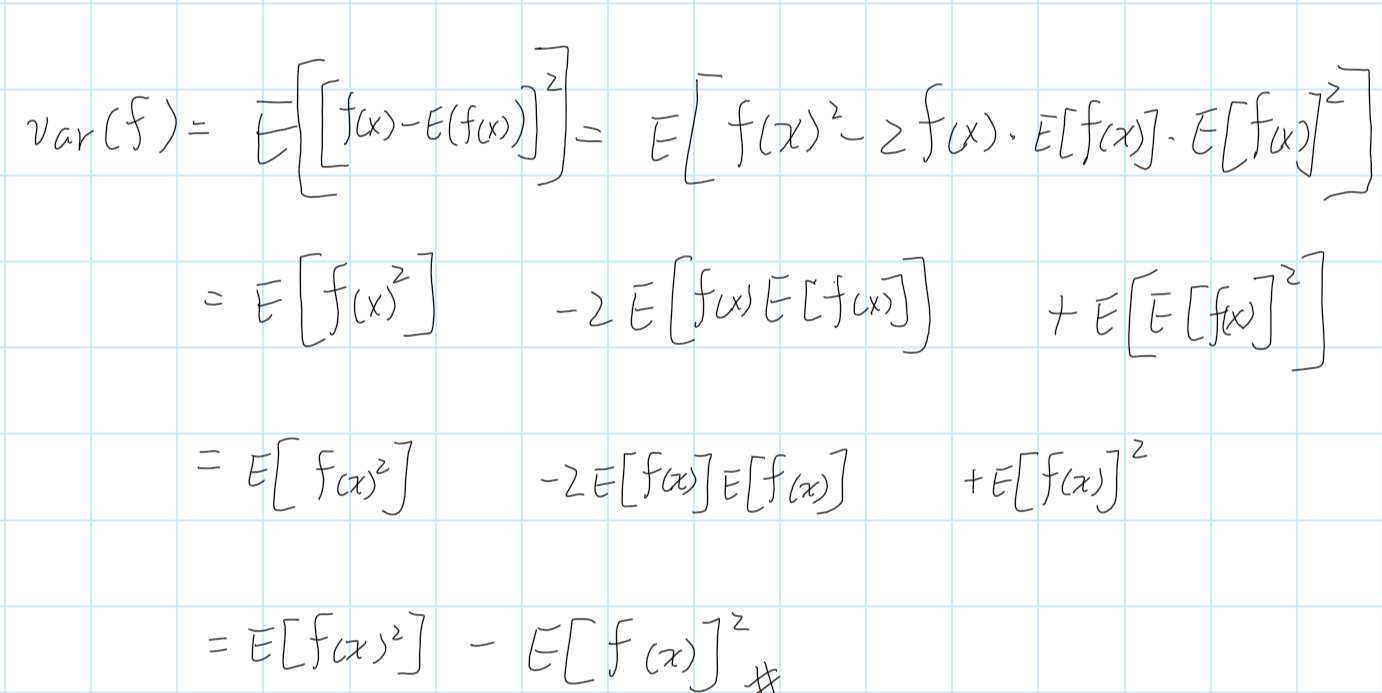 var(f) = E[[f(x)-E(f(x))]²] = E[f(x)²-2f(x)·E[f(x)]·E[f(x)]²]
= E[f(x)²] -2E[f(x)E[f(x)]] +E[E[f(x)]²]
= E[f(x)²] -2E[f(x)]E[f(x)] +E[f(x)]²
= E[f(x)²] - E[f(x)]² #